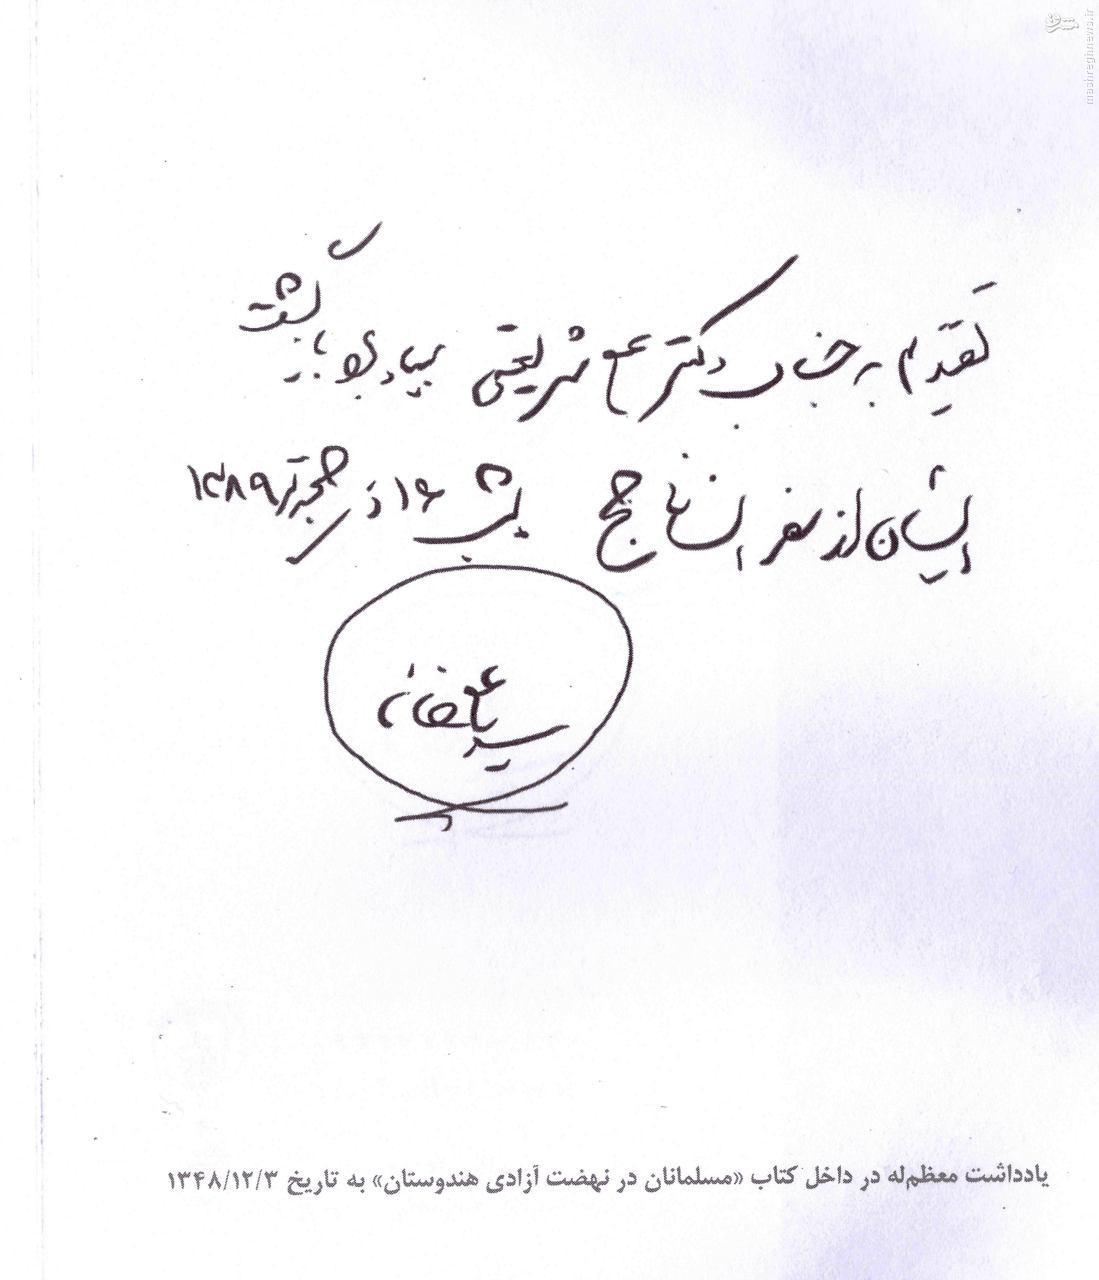 مشرق
mashreghnews.ir
تقدیم به جناب دکتر علی شریعتی بیادبود بازگشت
ایشان از سفر انسانساز حج شب ۱۶ ذیحجه ۱۳۸۹
سید علی خامنه‌ای
یادداشت معظم‌له در داخل کتاب «مسلمانان در نهضت آزادی هندوستان» به تاریخ ۱۳۴۸/۱۲/۳